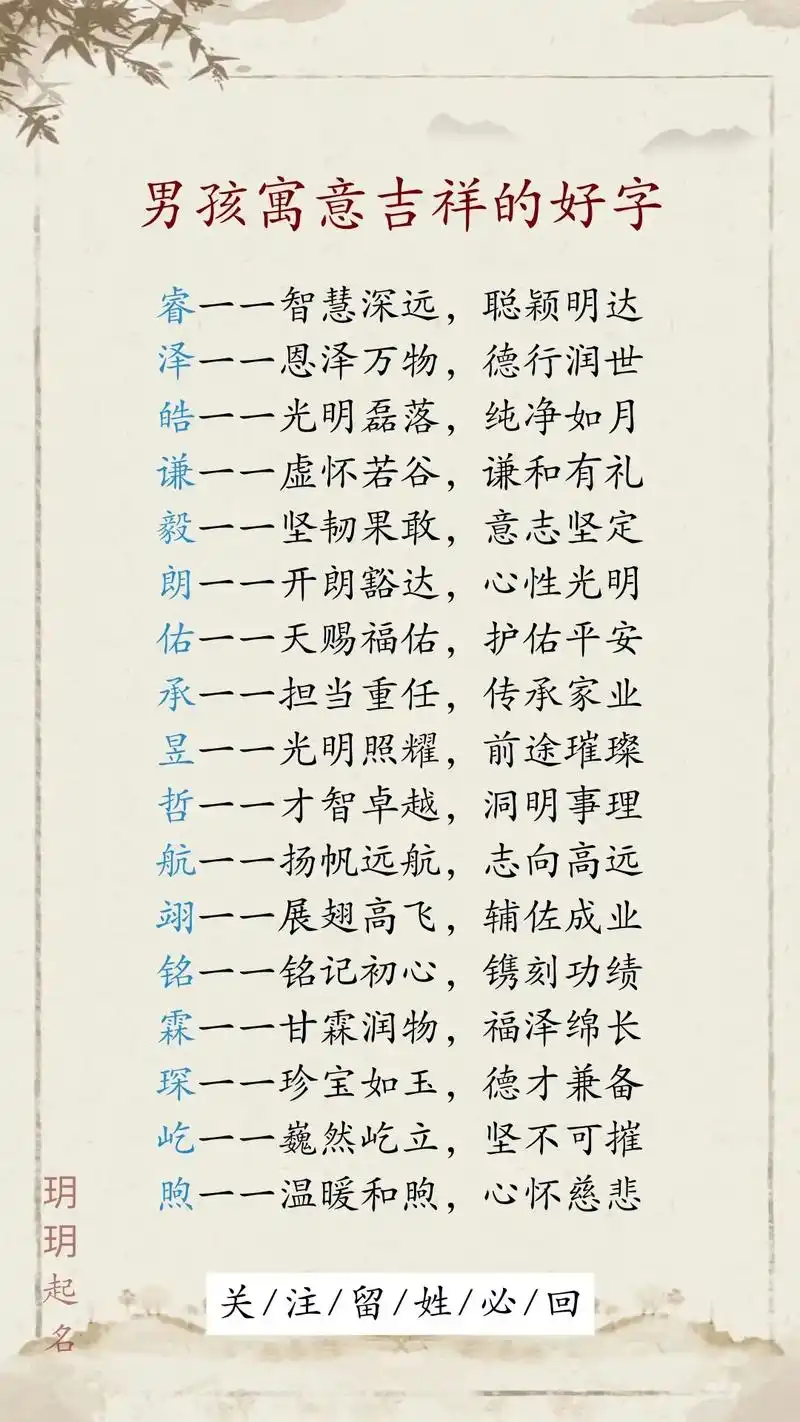 男孩寓意吉祥的好字
睿一一智慧深远，聪颖明达
泽一一恩泽万物，德行润世
皓一一光明磊落，纯净如月
谦一一虚怀若谷，谦和有礼
毅一一坚韧果敢，意志坚定
朗一一开朗豁达，心性光明
佑一一天赐福佑，护佑平安
承一一担当重任，传承家业
昱一一光明照耀，前途璀璨
哲一一才智卓越，洞明事理
航一一扬帆远航，志向高远
翊一一展翅高飞，辅佐成业
铭一一铭记初心，镌刻功绩
霖一一甘霖润物，福泽绵长
琛一一珍宝如玉，德才兼备
屹一一巍然屹立，坚不可摧
煦一一温暖和煦，心怀慈悲
玥玥起名
关/注/留/姓/必/回